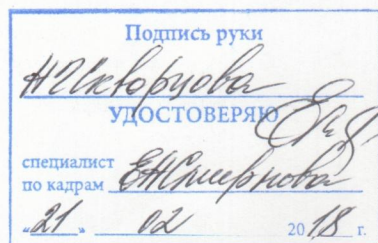 Подпись руки
Н Г Скворцова
УДОСТОВЕРЯЮ
специалист
по кадрам ЕЖСмирнова
„21“ 02 2018 г.